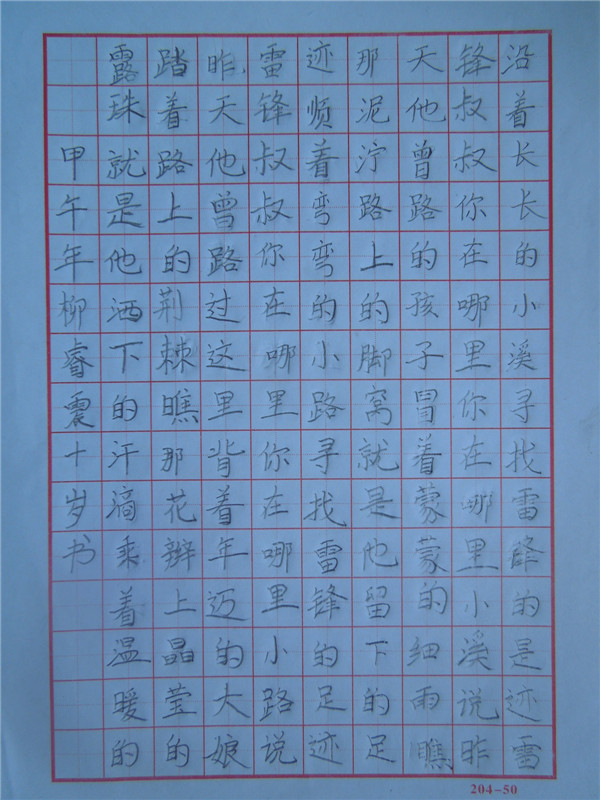 沿着长长的小溪寻找雷锋的是迹雷
锋叔叔你在哪里你在哪里小溪说昨
天他曾路的孩子冒着蒙蒙的细雨瞧
那泥泞路上的脚窝就是他留下的足
迹顺着弯弯的小路寻找雷锋的足迹
雷锋叔叔你在哪里你在哪里小路说
昨天他曾路过这里背着年迈的大娘
踏着路上的荆棘瞧那花瓣上晶莹的
露珠就是他洒下的汗滴乘着温暖的
甲午年柳睿震十岁书
204-50